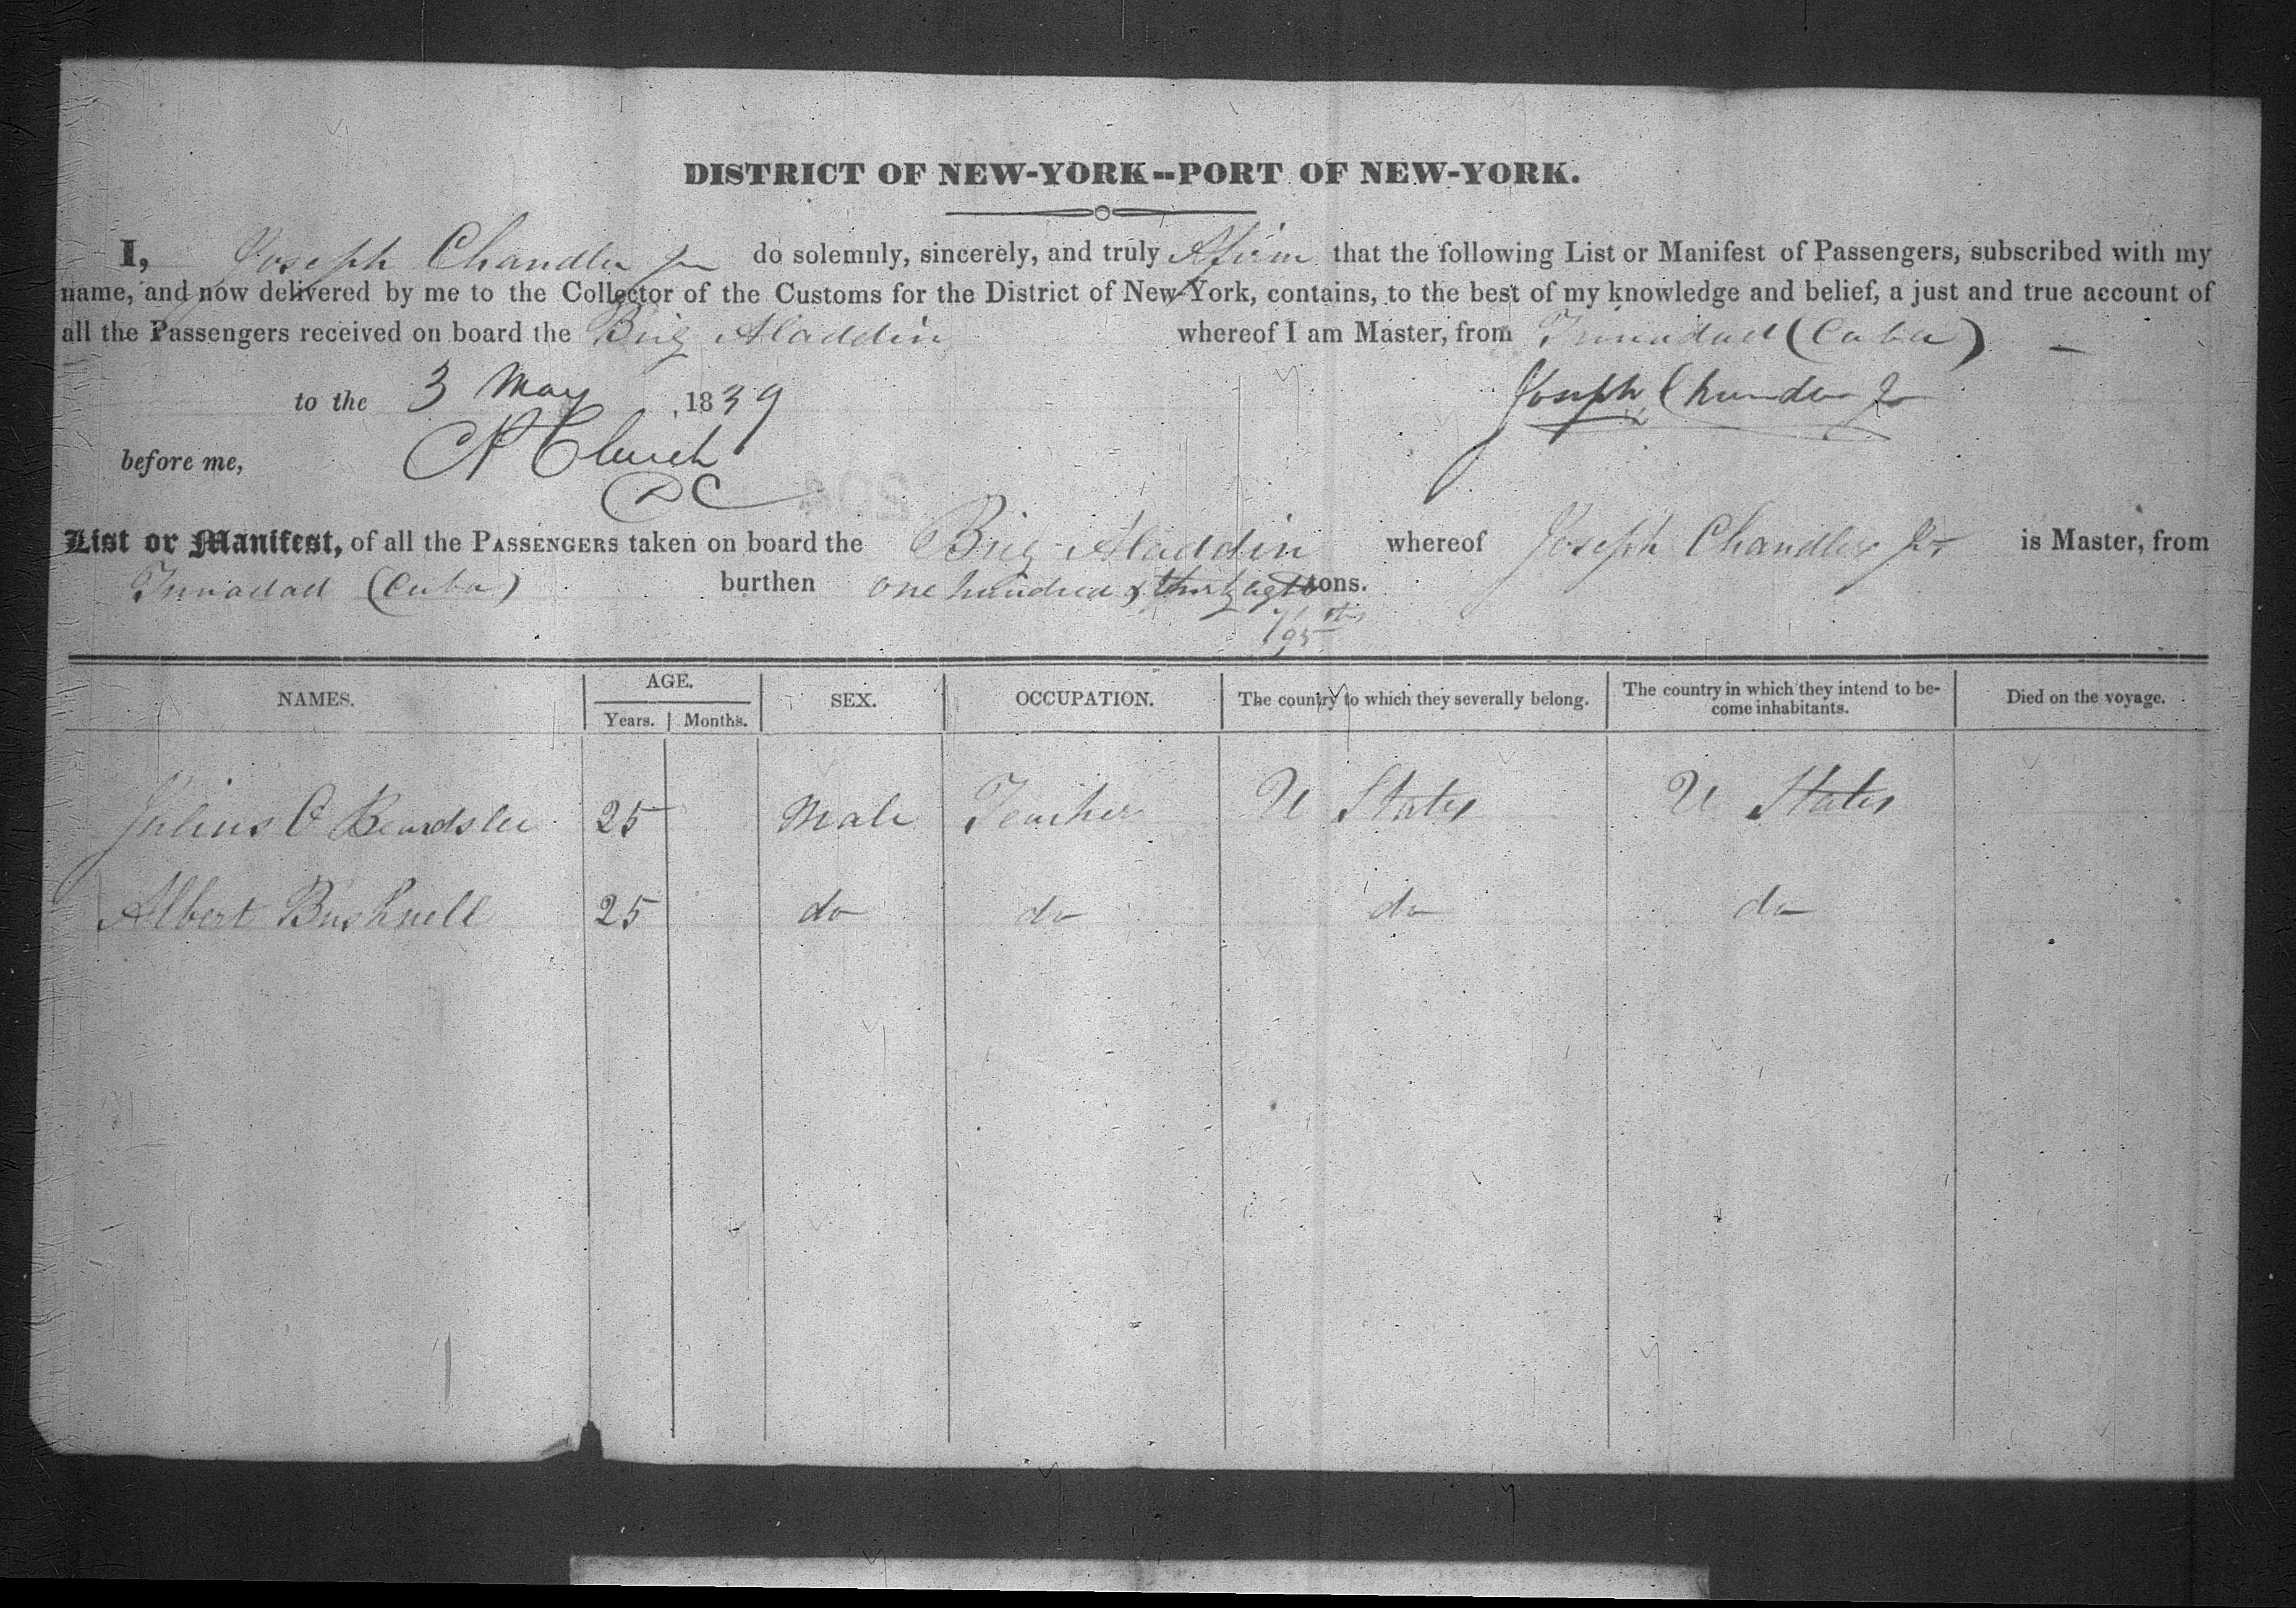 DISTRICT OF NEW-YORK--PORT OF NEW-YORK.
I, Joseph Chandler Jr do solemnly, sincerely, and truly Afirm that the following List or Manifest of Passengers, subscribed with my
name, and now delivered by me to the Collector of the Customs for the District of New-York, contains, to the best of my knowledge and belief, a just and true account of
all the Passengers received on board the Brig Aladdin whereof I am Master, from Trinadad (Cuba)
to the 3 May 1839 Joseph Chandler Jr
before me, Church
DC
List or Manifest, of all the PASSENGERS taken on board the Brig Aladdin whereof Joseph Chandler Jr is Master, from
Trinadad (Cuba) burthen one hundred & thirty eight tons.
/95ths
NAMES. AGE. SEX. OCCUPATION. The country to which they severally belong. The country in which they intend to be- Died on the voyage.
Years. Months. come inhabitants.
Julius O Beardslee 25 Male Teacher U States U States
Albert Bushnell 25 do do do do